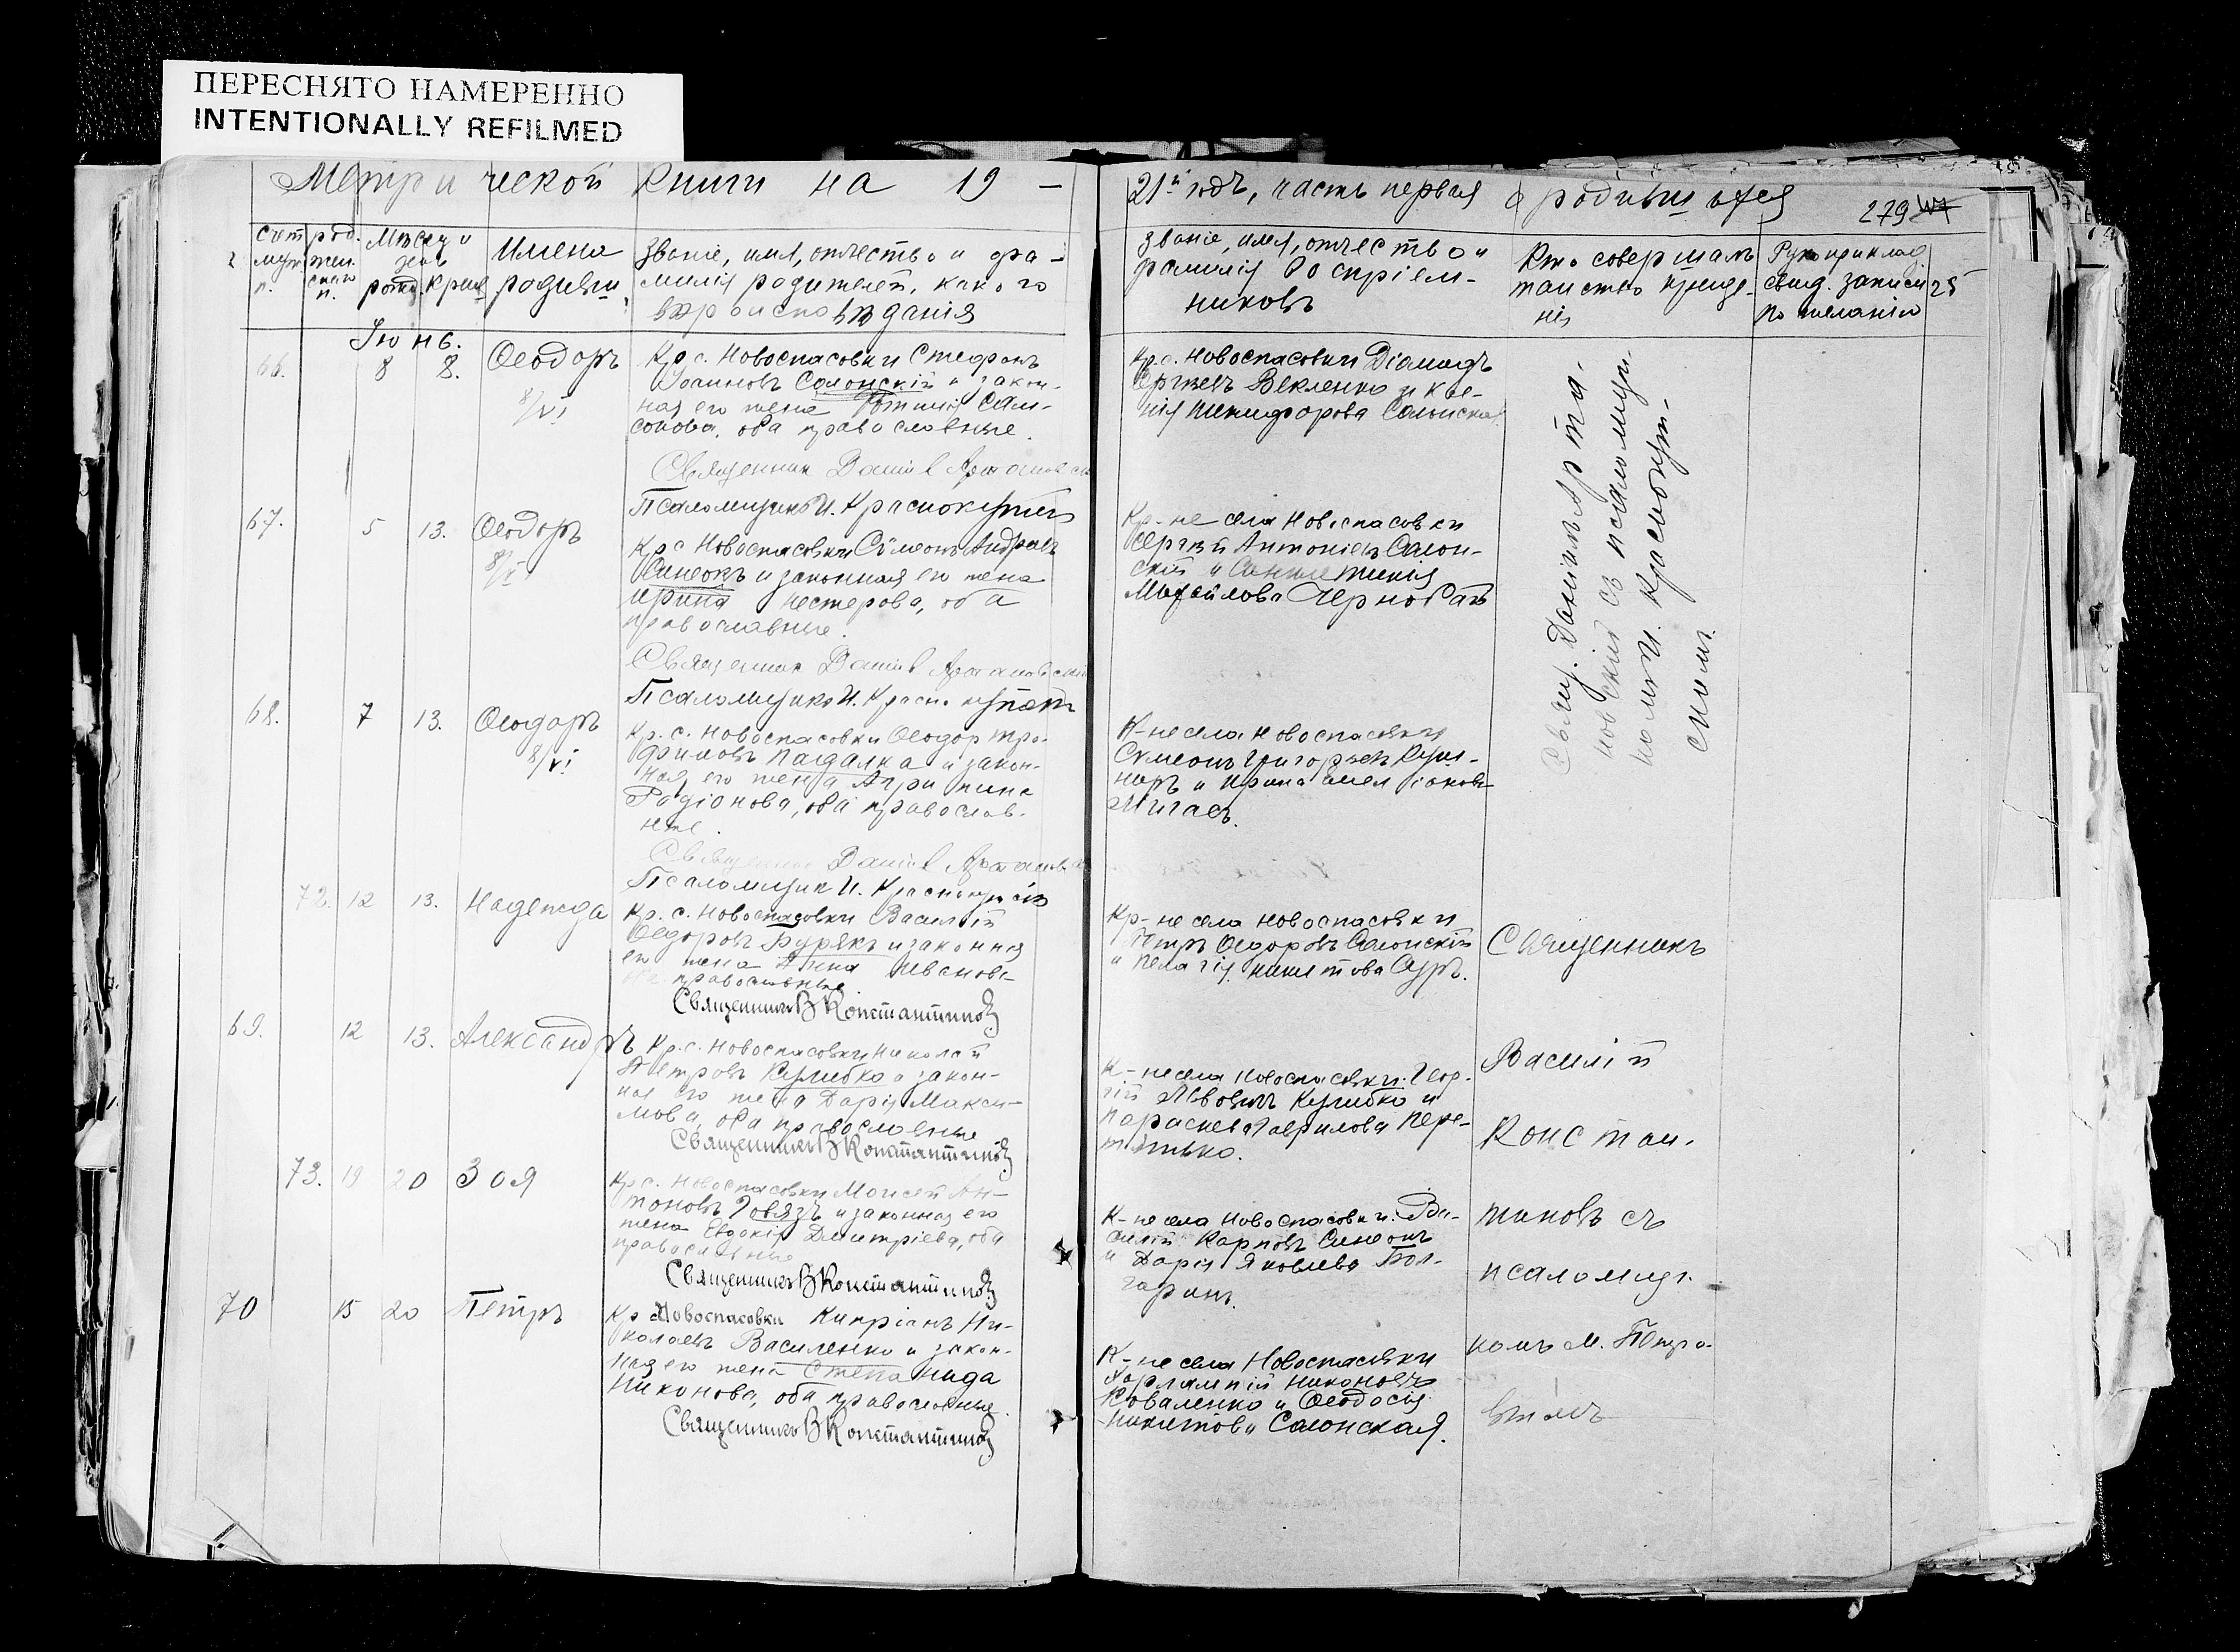 ПЕРЕСНЯТО НАМЕРЕННО
INTENTIONALLY REFILMED
Метрической книги на 19 –
21й годъ, часть первая о родившихся
279
Счет род.
муж. п.
жен. п.
Месяц и день
рожд. крещ.
Имена родивш.
Званіе, имя, отчество и фа-
милія родителей, какого
вѣроисповѣданія
Званіе, имя, отчество и
фамилія воспріем-
никовъ
Кто совершалъ
таинство креще-
нія
Рукоприклад.
свид. записи
по желанію
25
Іюнь.
66.
8
8.
Ѳеодоръ
8/VI
Кр. с. Новоспасовки Стефанъ
Іоанновъ Салонскій и закон-
ная его жена Сам-
сонова, оба православные.
Священник Даніил Артановскій
Псаломщикъ И. Краснокутскій
Кр. с. Новоспасовки Діомидъ
Сергѣевъ Векленко и Ксе-
нія Никифорова Салонская
67.
5
13.
Ѳеодоръ
8/VI
Кр. с. Новоспасовки Сѵмеонъ Андреевъ
Синеокъ и законная его жена
Ирина Нестерова, оба
православные.
Священник Даніил Артановскій
Псаломщикъ И. Краснокутскій
Кр-не села Новоспасовки
Сергѣй Антоніевъ Салон-
скій и Синклитикія
Михайлова Чернобай
68.
7
13.
Ѳеодоръ
8/VI
Кр. с. Новоспасовки Ѳеодор Тро-
фимовъ Падалка и закон-
ная его жена Агрипина
Радіонова, оба православ-
ные.
Священник Даніил Артановскій
Псаломщик И. Краснокутскій
К-не села Новоспасовки
Сѵмеонъ Григорьевъ
и Ирина
Мигаль.
72.
12
13.
Надежда
Кр. с. Новоспасовки Василій
Ѳедоровъ Бурякъ и законная
его жена Анна Иванова
православные.
Священникъ В Константиновъ
Кр-не села Новоспасовки
Петръ Ѳедоровъ Салонскій
и Пелагія Никитова
69.
12
13.
Александръ
Кр. с. Новоспасовки Николай
Петровъ Кулибко и закон-
ная его жена Дарія Макси-
мова, оба православные
Священникъ В Константиновъ
К-не села Новоспасовки Геор-
гій Львовичъ Кулибко и
Параскева Гаврилова Пере-
тятько.
73.
19
20
Зоя
Кр. с. Новоспасовки Моисей Ан-
тоновъ Говязъ и законная его
жена Евдокія Дмитріева, оба
православные
Священникъ В Константиновъ
К-не села Новоспасовки Ва-
силій Карповъ Синеокъ
и Дарія Яковлева Бол-
гаринъ.
70
15
20
Петръ
Кр. с. Новоспасовки Кипріанъ Ни-
колаевъ Василенко и закон-
ная его жена Степанида
Никонова, оба православные.
Священникъ В Константиновъ
К-не села Новоспасовки
Харлампій Никоновъ
Коваленко и Ѳеодосія
Никитова Салонская.
Свящ. Даніилъ Арта-
новскій съ псаломщи-
комъ И. Краснокут-
скимъ.
Священникъ
Василій
Констан-
тиновъ съ
псаломщи-
комъ М. Петро-